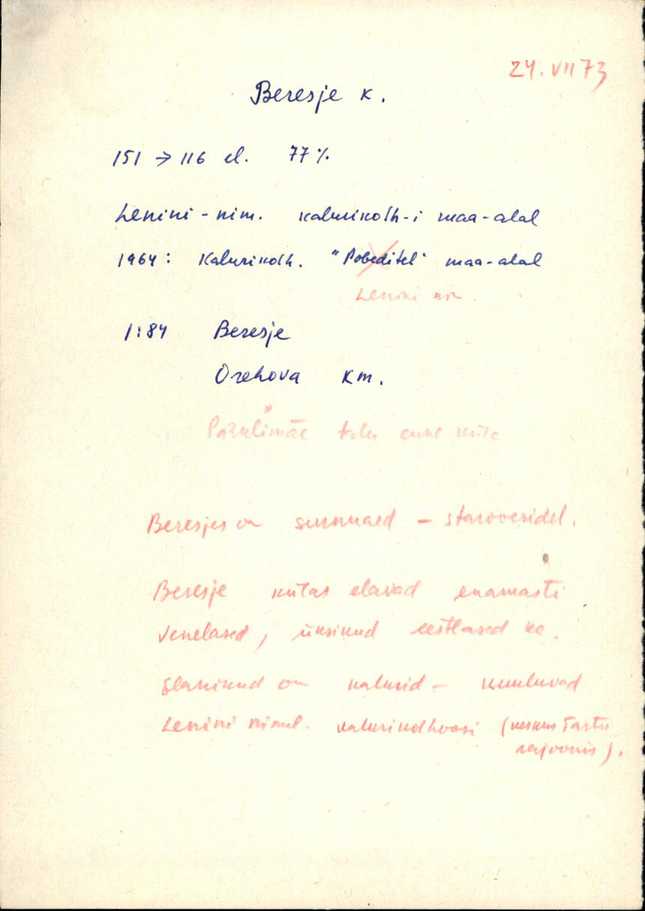 24. VII 73
Beresje k.
151 → 116 el. 77%
Lenini-nim. kalurikolh-i maa-alal
1964: Kalurikolh. "Pobeditel" maa-alal
Lenini nim.
1:84 Beresje
Orehova km.
tuli enne küla
Beresjes on surnuaed – staroveridel.
Beresje külas elavad enamasti
venelased, üksikud eestlased ka.
Elanikud on kalurid – kuuluvad
Lenini nimel. kalurikolhoosi (keskus Tartu
rajoonis).